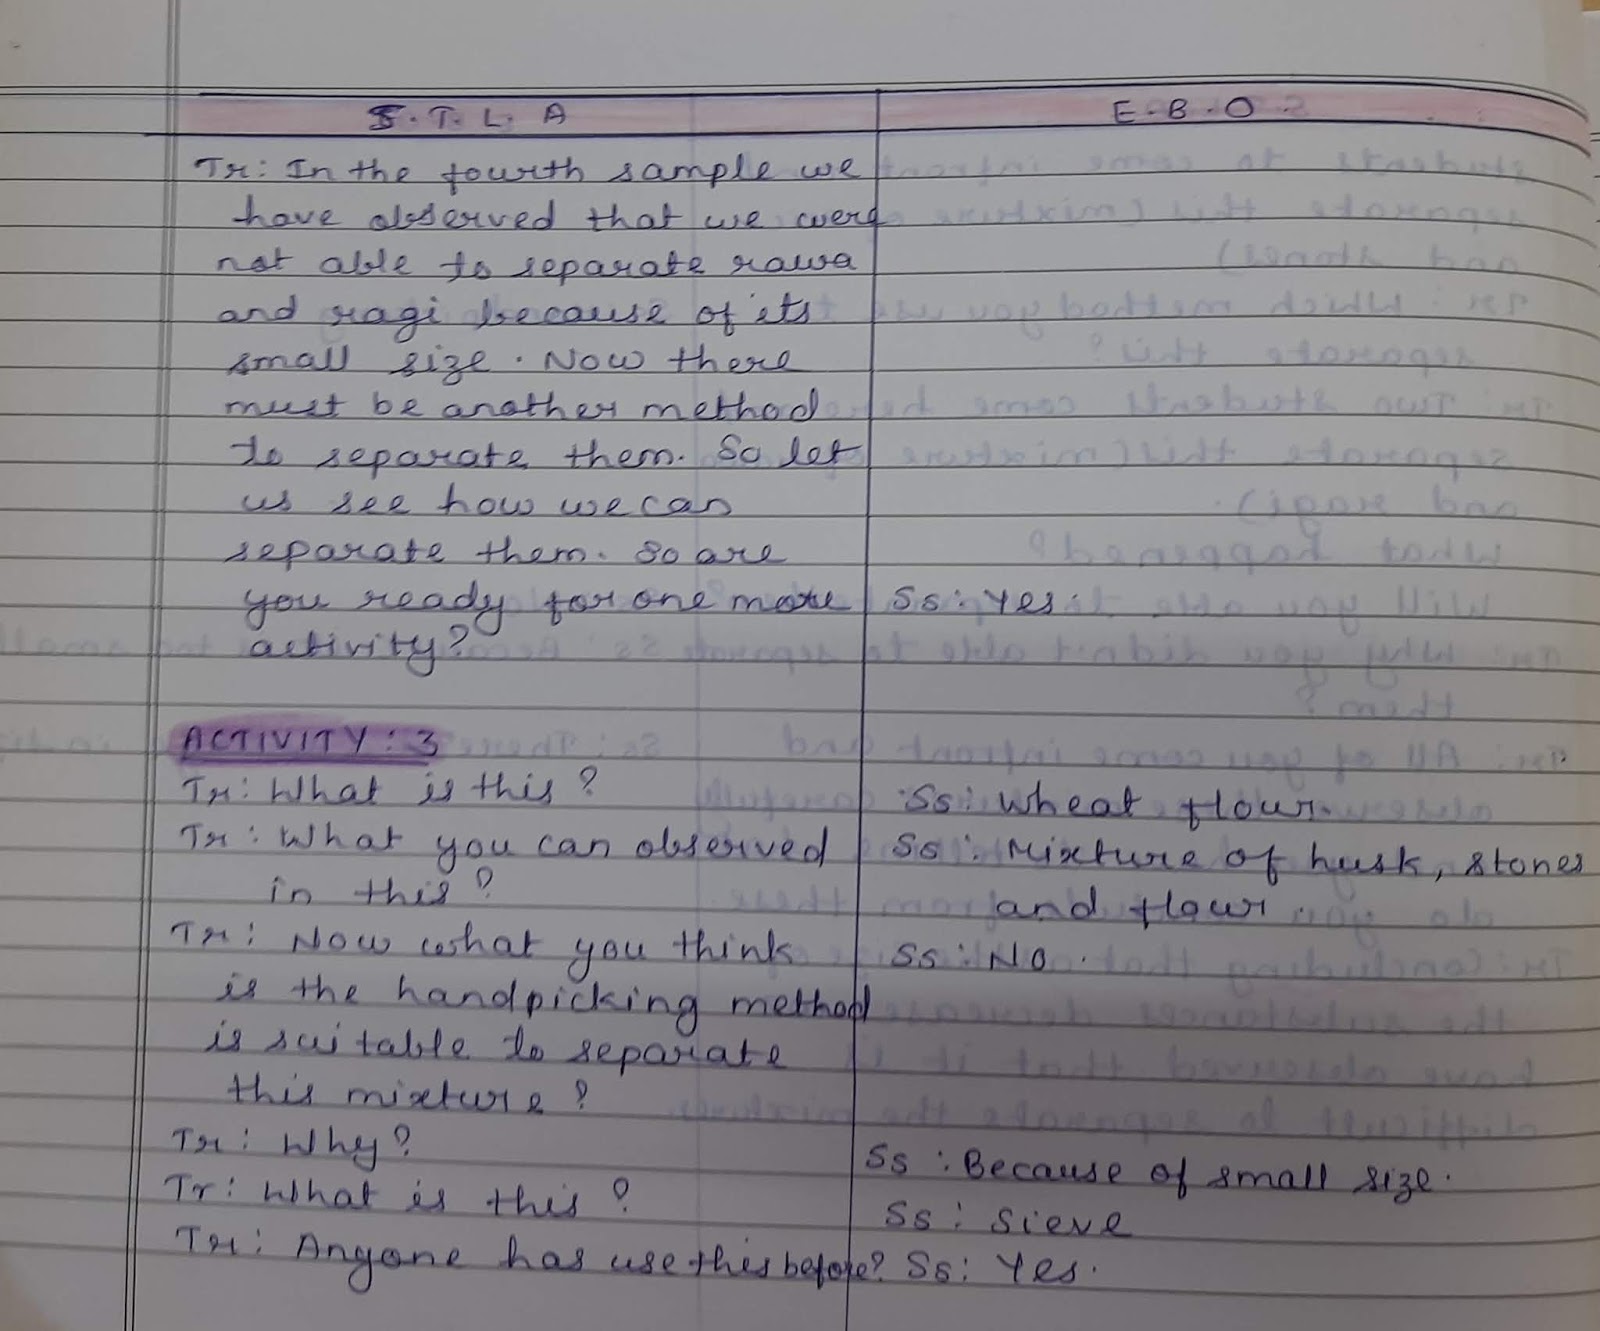 S.T.L.A
E.B.O
Tr: In the fourth sample we
have observed that we were
not able to separate rawa
and ragi because of its
small size. Now there
must be another method
to separate them. So let
us see how we can
separate them. So are
you ready for one more
activity?
Ss: Yes.
ACTIVITY: 3
Tr: What is this?
Ss: Wheat flour.
Tr: What you can observed
in this?
Ss: Mixture of husk, stones
and flour.
Tr: Now what you think
is the handpicking method
is suitable to separate
this mixture?
Ss: No.
Tr: Why?
Ss: Because of small size.
Tr: What is this?
Ss: Sieve
Tr: Anyone has use this before?
Ss: Yes.